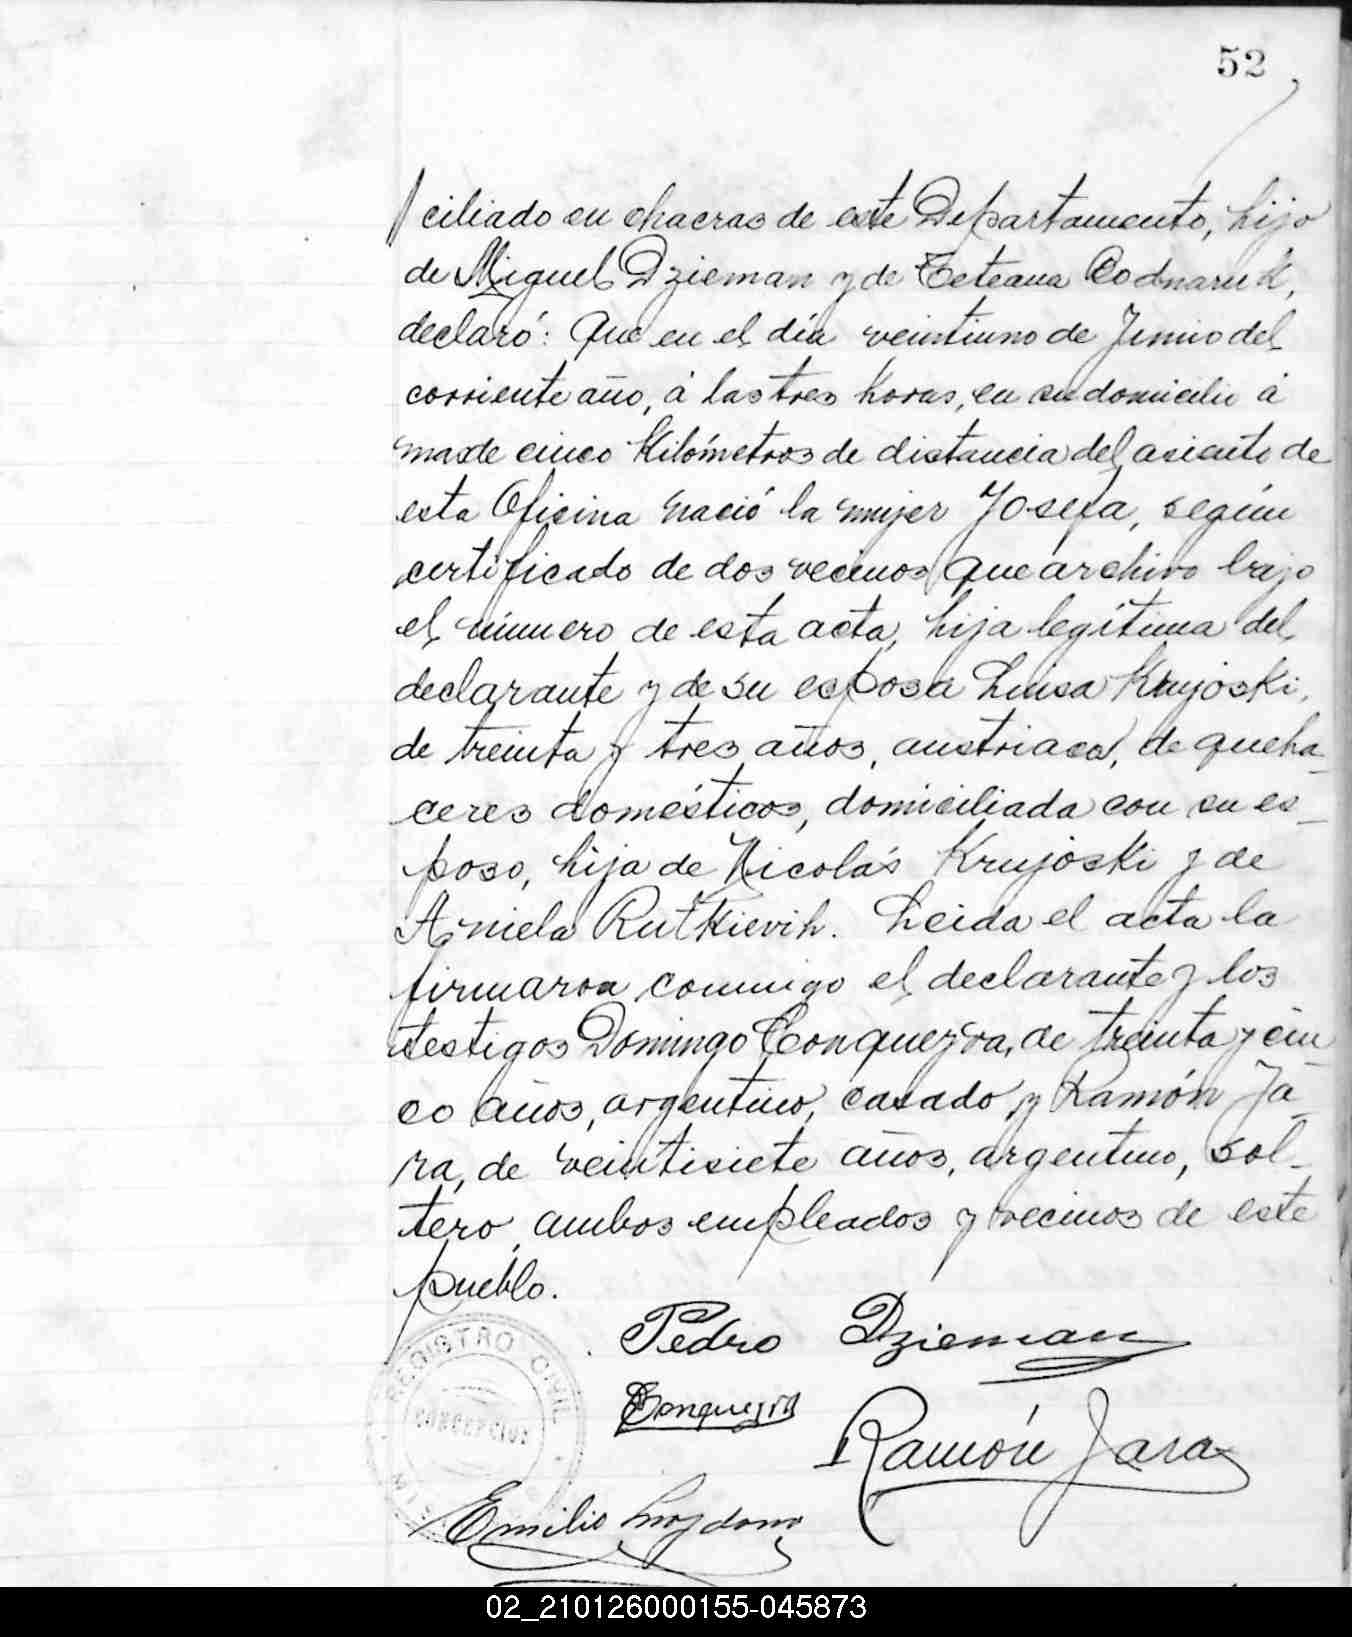 52
ciliado en chacras de este Departamento, hijo
de Miguel Dzieman y de Teteana Codnaruk,
declaró: Que en el día veintiuno de Junio del
corriente año, á las tres horas, en su domicilio á
mas de cinco kilómetros de distancia del asiento de
esta Oficina nació la mujer Josefa, según
certificado de dos vecinos que archivo bajo
el número de esta acta, hija legítima del
declarante y de su esposa Luisa Krujoski,
de treinta y tres años, austriaca, de queha_
ceres domésticos, domiciliada con su es_
poso, hija de Nicolás Krujoski y de
Aniela Rutkievih. Leida el acta la
firmaron conmigo el declarante y los
testigos Domingo Conquezra, de treinta y cin
co años, argentino, casado y Ramón Ja_
ra, de veintisiete años, argentino, sol_
tero, ambos empleados y vecinos de este
pueblo.
Pedro Dzieman
Conquezra
Ramón Jara
REGISTRO CIVIL
Emilio
02_210126000155-045873